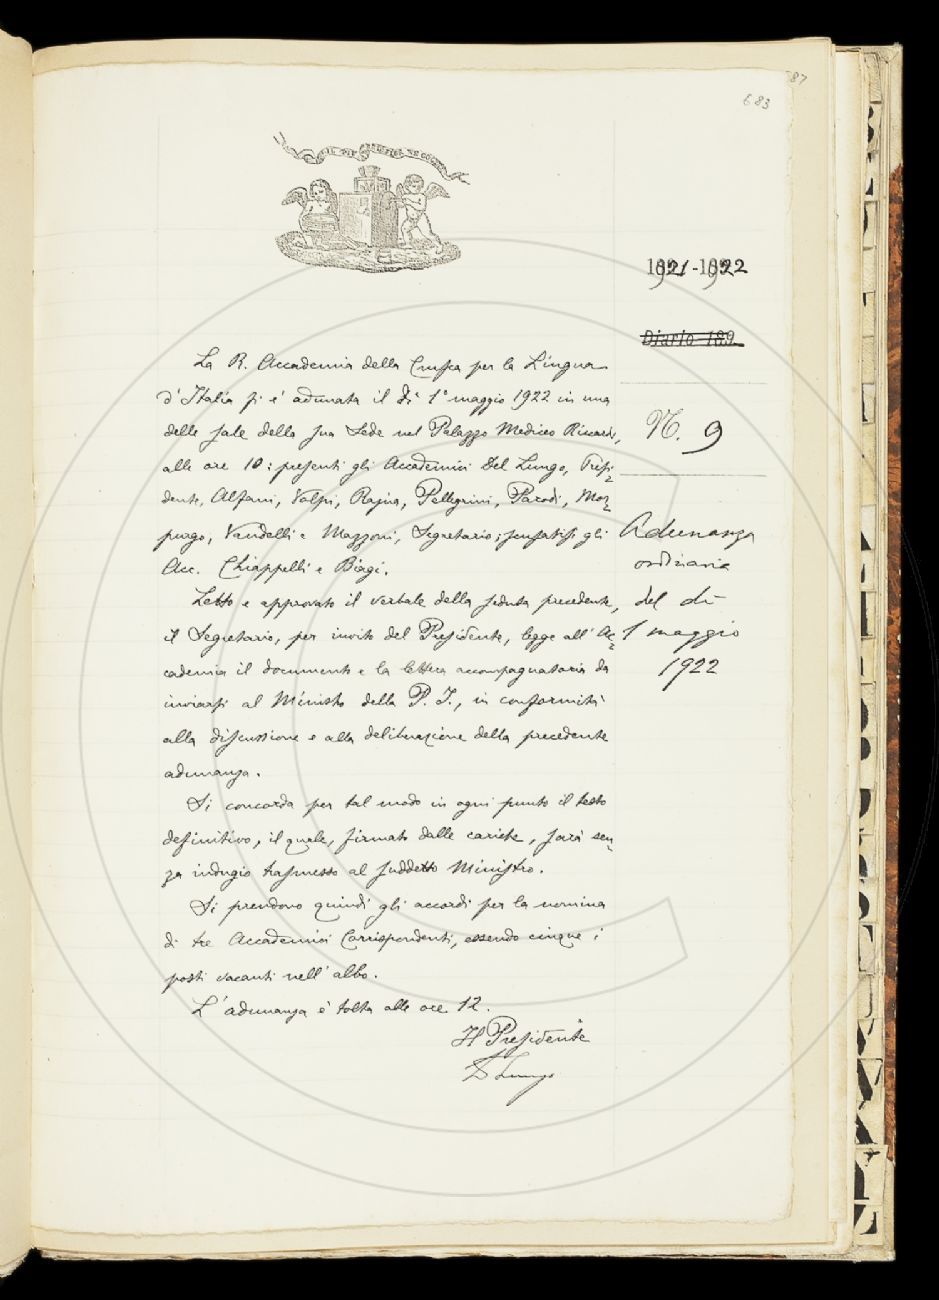 687
683
IL PIÙ BEL FIOR NE COGLIE
1921-1922
Diario 189
La R. Accademia della Crusca per la Lingua
d'Italia si è adunata il dì 1° maggio 1922 in una
delle sale della sua Sede nel Palazzo Mediceo Riccardi,
alle ore 10: presenti gli Accademici Del Lungo, Presi-
dente, Alfani, Volpi, Rajna, Pellegrini, Parodi, Mor-
purgo, Vandelli e Mazzoni, Segretario; scusatisi gli
Acc. Chiappelli e Biagi.
Letto e approvato il verbale della seduta precedente,
il Segretario, per invito del Presidente, legge all'Ac-
cademia il documento e la lettera accompagnatoria da
inviarsi al Ministro della P. I., in conformità
alla discussione e alla deliberazione della precedente
adunanza.
Si concorda per tal modo in ogni punto il testo
definitivo, il quale, firmato dalle cariche, sarà sen-
za indugio trasmesso al suddetto Ministro.
Si prendono quindi gli accordi per la nomina
di tre Accademici Corrispondenti, essendo cinque i
posti vacanti nell'albo.
L'adunanza è tolta alle ore 12.
Il Presidente
D Lungo
N. 9
Adunanza
ordinaria
del dì
1 maggio
1922